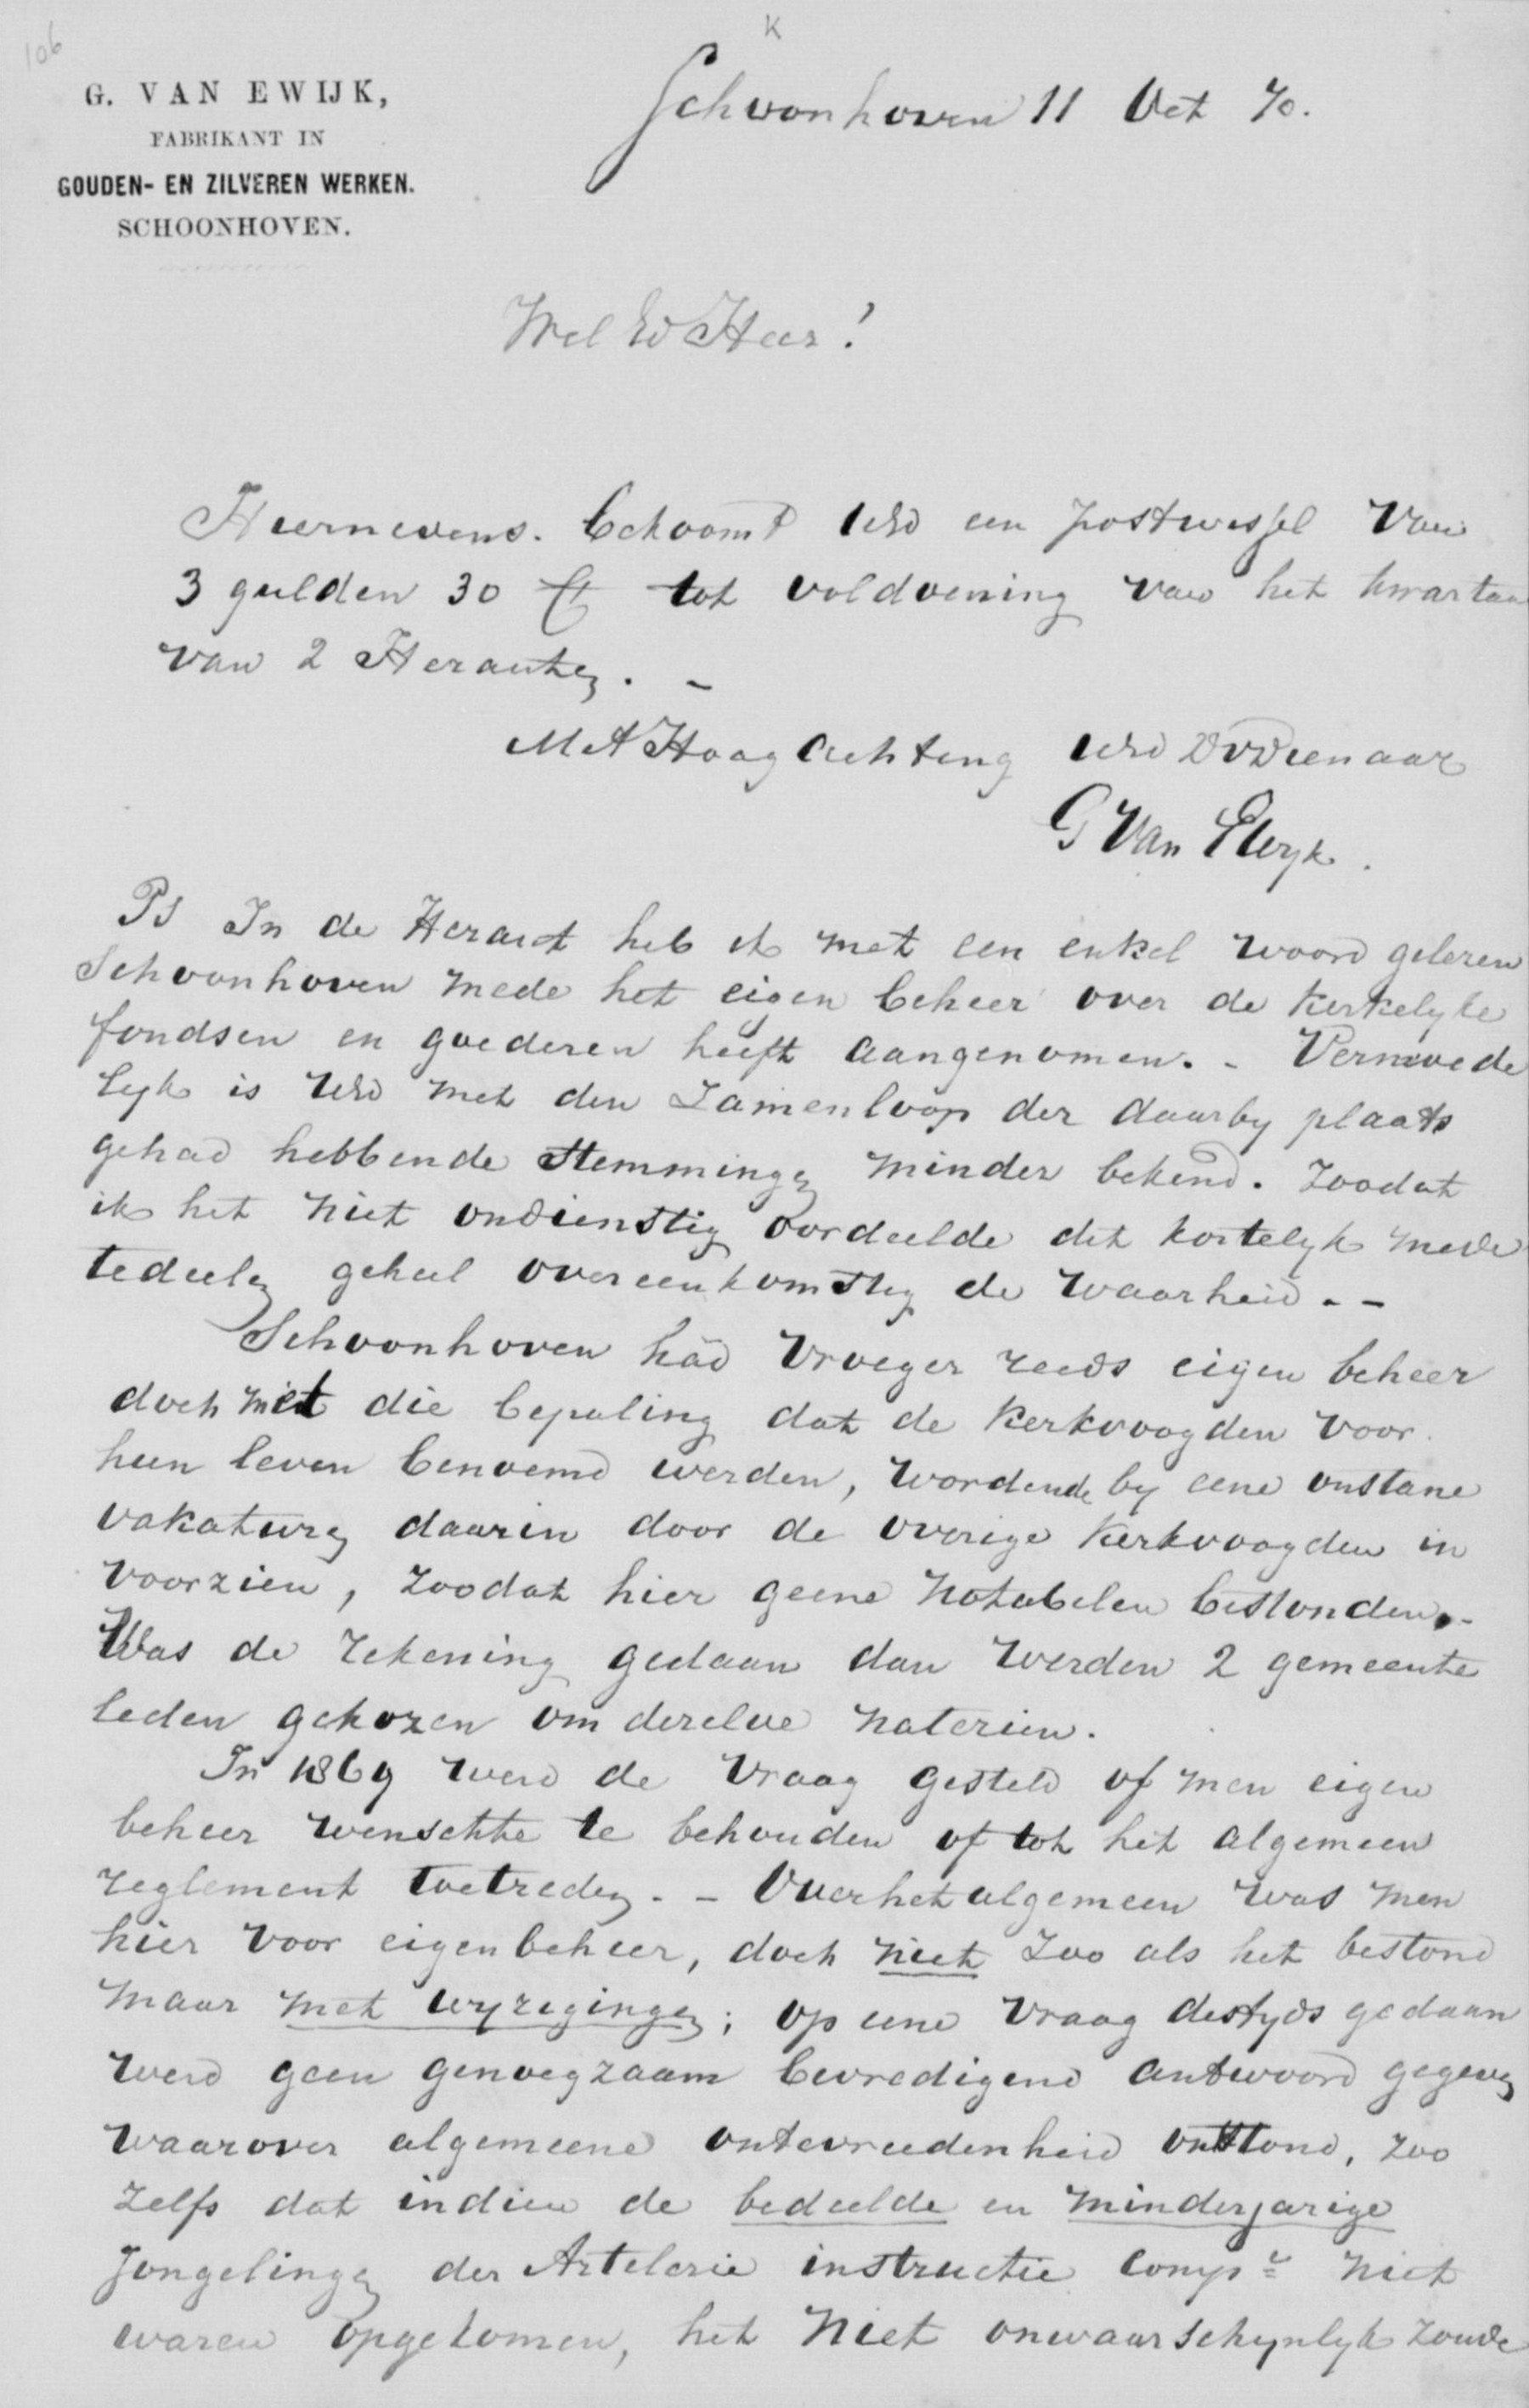 106
K
G. VAN EWIJK,
FABRIKANT IN
GOUDEN- EN ZILVEREN WERKEN.
SCHOONHOVEN.
Schoonhoven 11 Oct 70.
Wel Ed Heer!
Hiernevens. bekoomt UEd een postwissel van
3 gulden 30 Ct tot voldoening van het kwartaal
van 2 Herauten. -
Met Hoog Achting UEd DvDienaar
G Van Ewyk.
Ps In de Heraut heb ik met een enkel woord gelezen
Schoonhoven mede het eigen beheer over de kerkelyke
fondsen en goederen heeft aangenomen. - Vermoede
lyk is UEd met den Zamenloop der daarby plaats
gehad hebbende stemmingen minder bekend. Zoodat
ik het niet ondienstig oordeelde dit kortelyk mede
tedeelen geheel overeenkomstig de waarheid. -
Schoonhoven had vroeger reeds eigen beheer
doch met die bepaling dat de kerkvoogden voor
hun leven benoemd werden, wordende by eene onstane
vakature daarin door de overige kerkvoogden in
voorzien, zoodat hier geene notabelen bestonden. -
Was de rekening gedaan dan werden 2 gemeente
leden gekozen om dezelve natezien.
In 1869 werd de vraag gesteld of men eigen
beheer wenschte te behouden of tot het algemeen
reglement toetreden. - Over het algemeen was men
hier voor eigenbeheer, doch niet zoo als het bestond
maar met wyzigingen; op eene vraag destyds gedaan
werd geen genoegzaam bevredigend antwoord gegeven
waarover algemeene ontevreedenheid ontstond, zoo
zelfs dat indien de bedeelde en minderjarige
Jongelingen der Artelerie instructie Compe niet
waren opgekomen, het niet onwaarschynlyk zoude